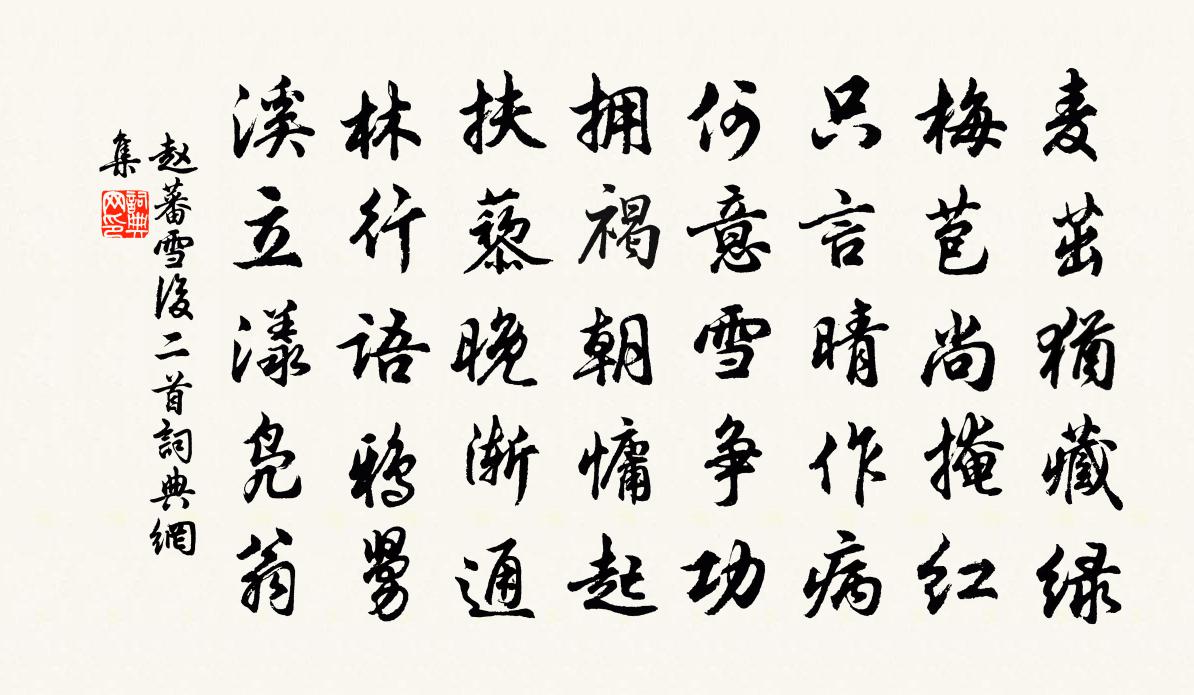 麦茁猶藏绿
梅苞尚掩红
只言晴作病
何意雪争功
拥褐朝慵起
扶藜晚渐通
林行语鸦舅
溪立漾凫翁
赵蕃雪後二首詞典網
集
詞典
网印